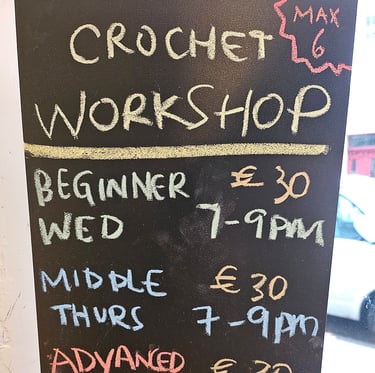 CROCHET
MAX
6
WORKSHOP
BEGINNER €30
WED 7-9PM
MIDDLE €30
THURS 7-9pm
ADVANCED €30